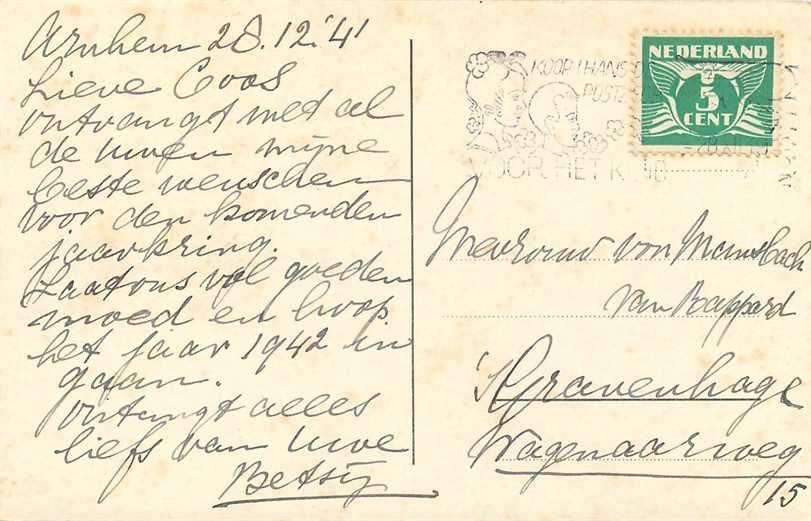 Arnhem 28.12.'41
Lieve Coos
ontvangt met al
de uwen mijne
beste wenschen
voor den komenden
jaarkring.
Laat ons vol goeden
moed en hoop
het jaar 1942 in
gaan.
Ontvangt alles
liefs van Uwe
Betsy
KOOP THANS
POSTZ
VOOR HET KIND
NEDERLAND
5
CENT
Mevrouw von Mansbach
van Rappard
's Gravenhage
Wagenaarweg
15